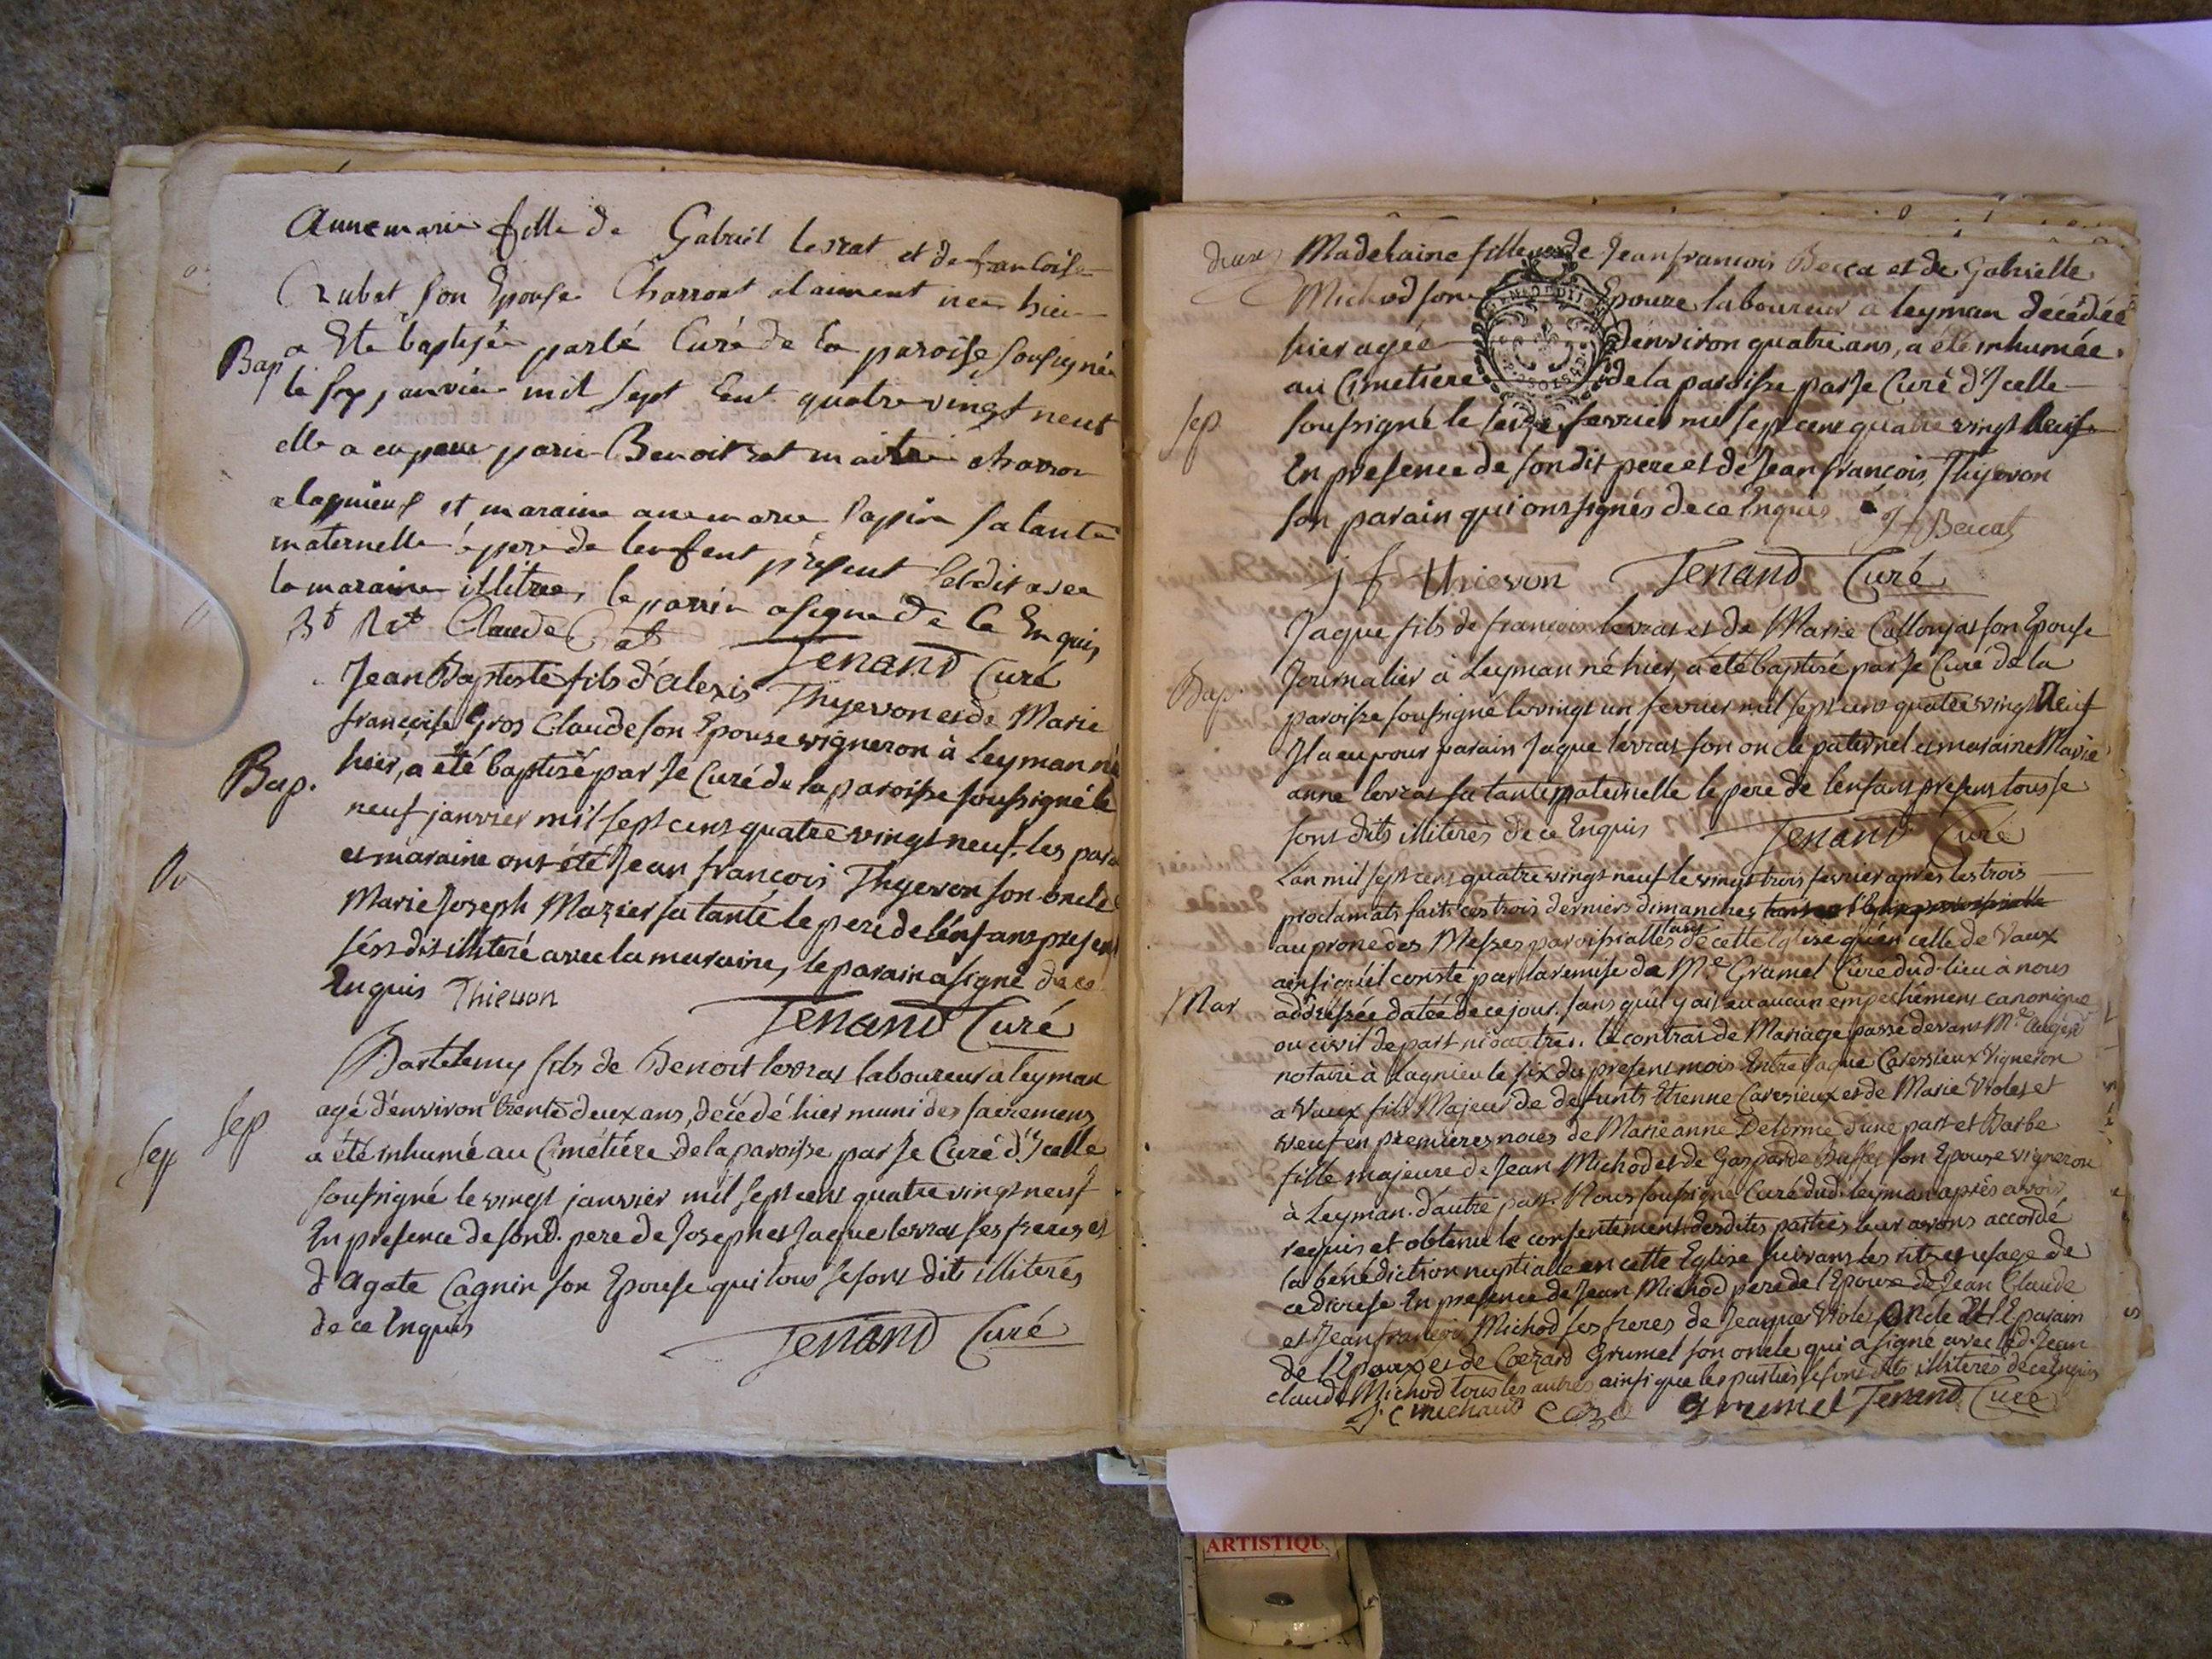 Annemarie fille de Gabriel levrat et de francoise
Rubat son Epouse Charront alaiment nee hier
Bap a Eté baptisée parlé Curé de la paroise sousigné
le six janvier mil sept Cent quatre vingt neuf
elle a eu pour parin Benoit rat maitre charron
alagnieux et maraine anemarie pappin sa tante
maternelle le pere de lenfent présent set dit avec
la maraine illitree, le parrin a signe de Ce Enquis
Bt Rat Claude Tenand Curé
Jean Baptiste fils d'alexis Thyevon et de Marie
francoise Gros Claude son Epouse vigneron à Leyman né
Bap. hier, a été baptisé par Je Curé de la paroisse soussigné le
neuf janvier mil sept cent quatre vingt neuf, les para
et maraine ont été Jean francois Thyevon son oncle
Marie Joseph Mazier sa tante le pere de lenfant present
sést dit illiteré avec la maraine, le parain a signé de ce
Enquis Thievon
Tenand Curé
Bartelemy fils de Benoit levrat laboureur a leyman
Sep agé d'environ trente deux ans, décédé hier muni des sacremens
Sep a été inhumé au Cimétiére de la paroisse par Je Curé d'Jcelle
soussigné le vingt janvier mil sept cent quatre vingt neuf
En presence de son d. pere de Joseph et Jaque levrat ses freres et
d'Agate Cagnin son Epouse qui tous se sont dits illiterés
de ce Enquis
Tenand Curé
deux Madelaine fille de Jean francois Becca et de Gabrielle
Michod son Epouze laboureur a leyman décédée
hier agée d'environ quatre ans, a été inhumée
au Cimetiere de la paroisse par Je Curé d'Jcelle
Sep soussigné le seize fevrier mil sept cent quatre vingt neuf
En presence de son dit pere et de Jean francois Thyevon
son parain qui ont signés de ce Enquis J f Becat
j f thievon Tenand Curé
Jaque fils de francois levrat et de Marie Calloujat son Epouse
Bap. Journalier à Leyman né hier, a été baptisé par Je Curé de la
paroisse soussigné le vingt un fevrier mil sept cent quatre vingt neuf
Jl a eu pour parain Jaque levrat son oncle paternel et maraine Marie
anne levrat sa tante paternelle le pere de lenfant present tous se
sont dits illiterés de ce Enquis Tenand Curé
L'an mil sept cent quatre vingt neuf le vingt trois fevrier après les trois
proclamats faits ces trois derniers dimanches
au prone des Messes paroissialles tant de cette Eglise qu'en celle de Vaux
ainsi qu'il conste par la remise de Me Grumel Curé dud. lieu à nous
Mar addréssée datée de ce jour. sans qu'il y ait eu aucun empechêment canonique
ou civil de part ni d'autres. le contrat de Mariage passé devant Me
notaire à Lagnieu le six du present mois Entre Jaque Caressieux Vigneron
a Vaux fils Majeur de defunts Etienne Caressieux et de Marie Violet et
veuf en premieres noces de Marie anne Delorme d'une part et Barbe
fille majeure de Jean Michod et de Gasparde Buffet son Epouse vigneron
à Leyman. d'autre part. Nous soussigné Curé dud. leyman après avoir
requis et obtenu le consentement desdites parties leur avons accordé
la bénédiction nuptialle en cette Eglise suivant les rits et usage de
ce diocese En presence de Jean Michod pere de l'Epouse de Jean Claude
et Jean francois Michod ses freres de Jaque Violet oncle et parain
de l'Epoux et de Cézard Grumel son oncle qui a signé avec led. Jean
claude Michod tous les autres ainsi que les parties se sont dits illiterés de ce Enquis
J. C michaud Grumel Tenand Curé
ARTISTIQU